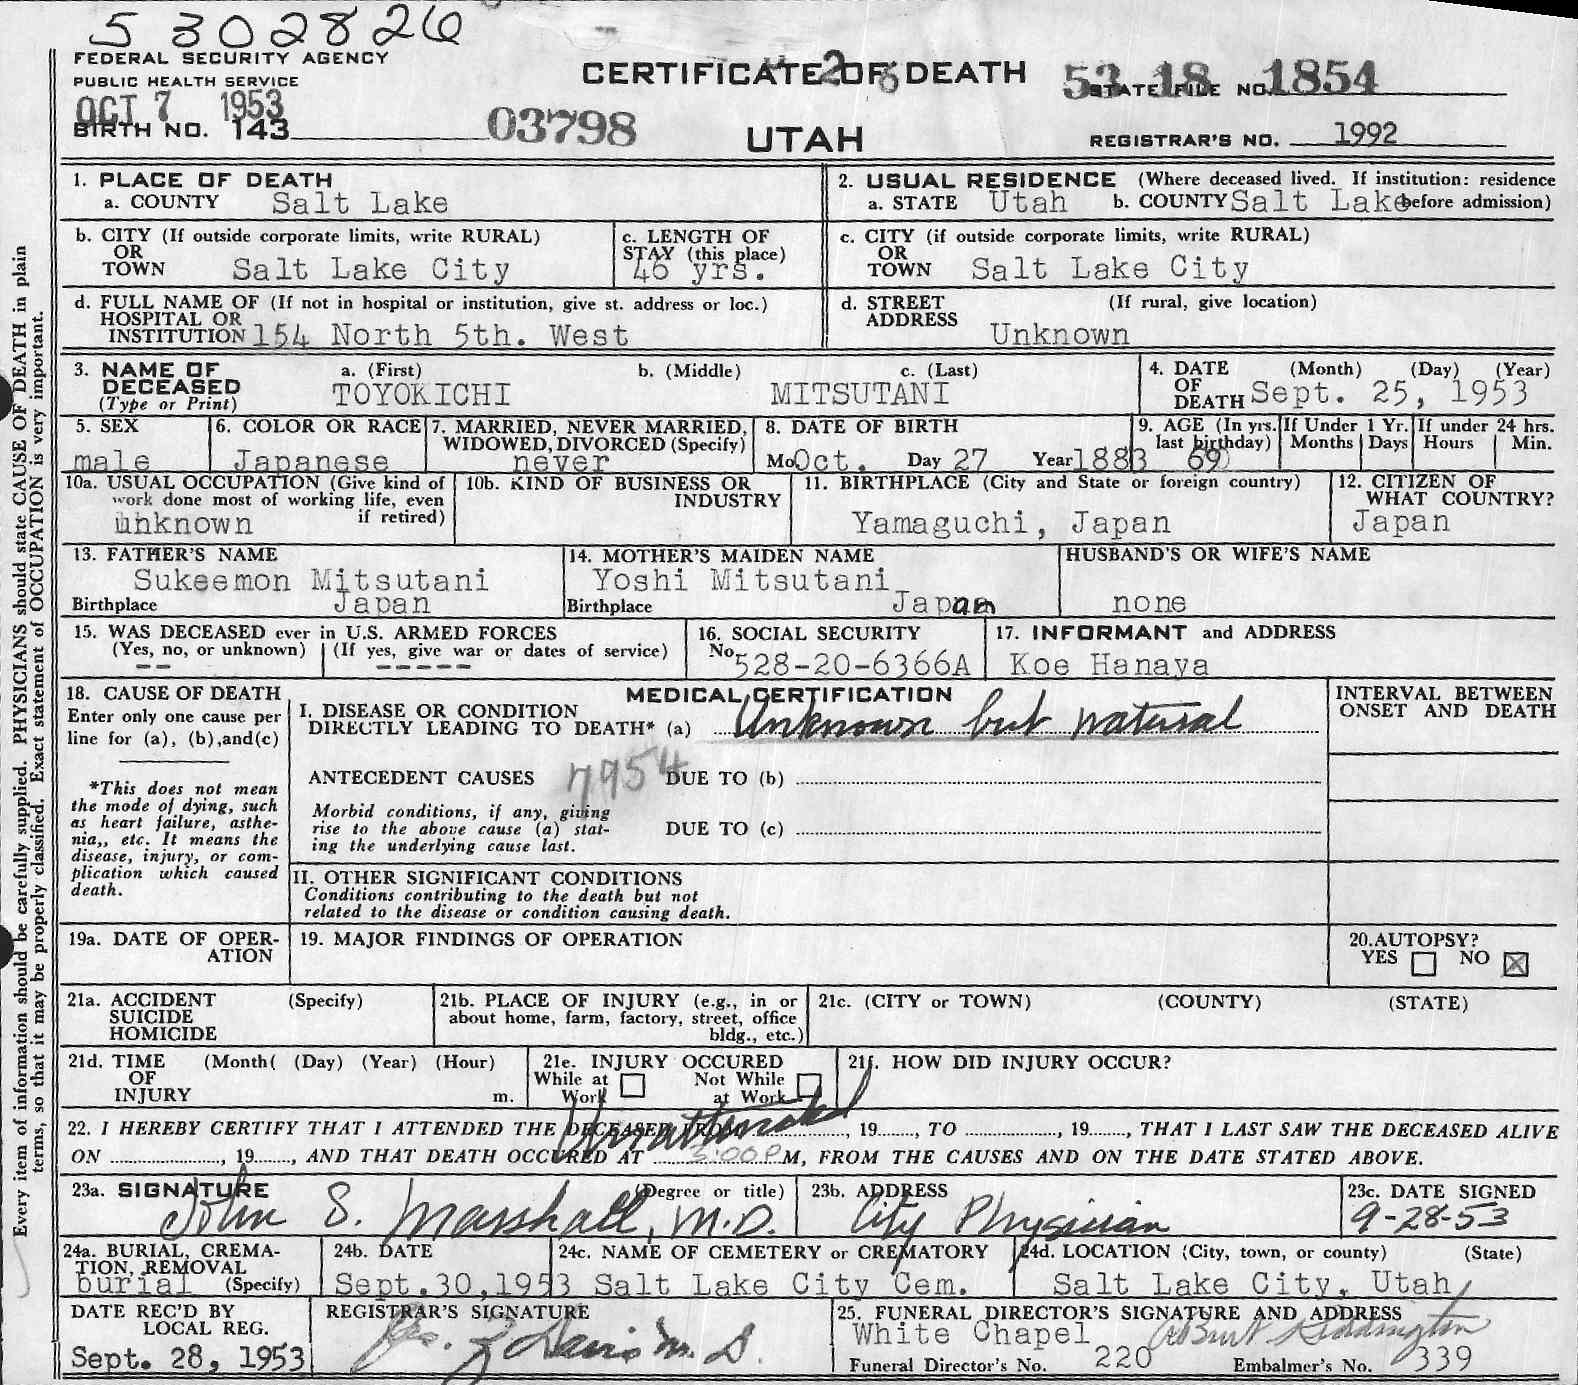 5 302826
FEDERAL SECURITY AGENCY
PUBLIC HEALTH SERVICE
OCT 7 1953
BIRTH NO. 143
03798
CERTIFICATE OF DEATH
26
UTAH
53 18 1854
STATE FILE NO.
REGISTRAR'S NO. 1992
Every item of information should be carefully supplied. PHYSICIANS should state CAUSE OF DEATH in plain
terms, so that it may be properly classified. Exact statement of OCCUPATION is very important.
1. PLACE OF DEATH
a. COUNTY Salt Lake
2. USUAL RESIDENCE (Where deceased lived. If institution: residence
a. STATE Utah b. COUNTY Salt Lake before admission)
b. CITY (If outside corporate limits, write RURAL)
OR
TOWN Salt Lake City
c. LENGTH OF
STAY (this place)
46 yrs.
c. CITY (if outside corporate limits, write RURAL)
OR
TOWN Salt Lake City
d. FULL NAME OF (If not in hospital or institution, give st. address or loc.)
HOSPITAL OR
INSTITUTION 154 North 5th. West
d. STREET (If rural, give location)
ADDRESS
Unknown
3. NAME OF a. (First) b. (Middle) c. (Last)
DECEASED TOYOKICHI MITSUTANI
(Type or Print)
4. DATE (Month) (Day) (Year)
OF
DEATH Sept. 25, 1953
5. SEX
male
6. COLOR OR RACE
Japanese
7. MARRIED, NEVER MARRIED,
WIDOWED, DIVORCED (Specify)
never
8. DATE OF BIRTH
Mo Oct. Day 27 Year 1883
9. AGE (In yrs.
last birthday)
69
If Under 1 Yr.
Months Days
If under 24 hrs.
Hours Min.
10a. USUAL OCCUPATION (Give kind of
work done most of working life, even
if retired)
unknown
10b. KIND OF BUSINESS OR
INDUSTRY
11. BIRTHPLACE (City and State or foreign country)
Yamaguchi, Japan
12. CITIZEN OF
WHAT COUNTRY?
Japan
13. FATHER'S NAME
Sukeemon Mitsutani
Birthplace Japan
14. MOTHER'S MAIDEN NAME
Yoshi Mitsutani
Birthplace Japan
HUSBAND'S OR WIFE'S NAME
none
15. WAS DECEASED ever in U.S. ARMED FORCES
(Yes, no, or unknown) (If yes, give war or dates of service)
-- -----
16. SOCIAL SECURITY
No. 528-20-6366A
17. INFORMANT and ADDRESS
Koe Hanaya
18. CAUSE OF DEATH
Enter only one cause per
line for (a), (b), and (c)
*This does not mean
the mode of dying, such
as heart failure, asthe-
nia,, etc. It means the
disease, injury, or com-
plication which caused
death.
MEDICAL CERTIFICATION
I. DISEASE OR CONDITION
DIRECTLY LEADING TO DEATH* (a) Unknown but natural
ANTECEDENT CAUSES 7954 DUE TO (b)
Morbid conditions, if any, giving
rise to the above cause (a) stat-
ing the underlying cause last.
DUE TO (c)
II. OTHER SIGNIFICANT CONDITIONS
Conditions contributing to the death but not
related to the disease or condition causing death.
INTERVAL BETWEEN
ONSET AND DEATH
19a. DATE OF OPER-
ATION
19. MAJOR FINDINGS OF OPERATION
20. AUTOPSY?
YES NO X
21a. ACCIDENT (Specify)
SUICIDE
HOMICIDE
21b. PLACE OF INJURY (e.g., in or
about home, farm, factory, street, office
bldg., etc.)
21c. (CITY or TOWN) (COUNTY) (STATE)
21d. TIME (Month( (Day) (Year) (Hour)
OF
INJURY m.
21e. INJURY OCCURED
While at Not While
Work at Work
21f. HOW DID INJURY OCCUR?
Unattended
22. I HEREBY CERTIFY THAT I ATTENDED THE DECEASED FROM , 19 , TO , 19 , THAT I LAST SAW THE DECEASED ALIVE
ON , 19 , AND THAT DEATH OCCURED AT 3:00 P M, FROM THE CAUSES AND ON THE DATE STATED ABOVE.
23a. SIGNATURE (Degree or title)
John S. Marshall, M.D.
23b. ADDRESS
City Physician
23c. DATE SIGNED
9-28-53
24a. BURIAL, CREMA-
TION, REMOVAL
burial (Specify)
24b. DATE
Sept. 30, 1953
24c. NAME OF CEMETERY or CREMATORY
Salt Lake City Cem.
24d. LOCATION (City, town, or county) (State)
Salt Lake City, Utah
DATE REC'D BY
LOCAL REG.
Sept. 28, 1953
REGISTRAR'S SIGNATURE
Davis M.D.
25. FUNERAL DIRECTOR'S SIGNATURE AND ADDRESS
White Chapel
Funeral Director's No. 220 Embalmer's No. 339